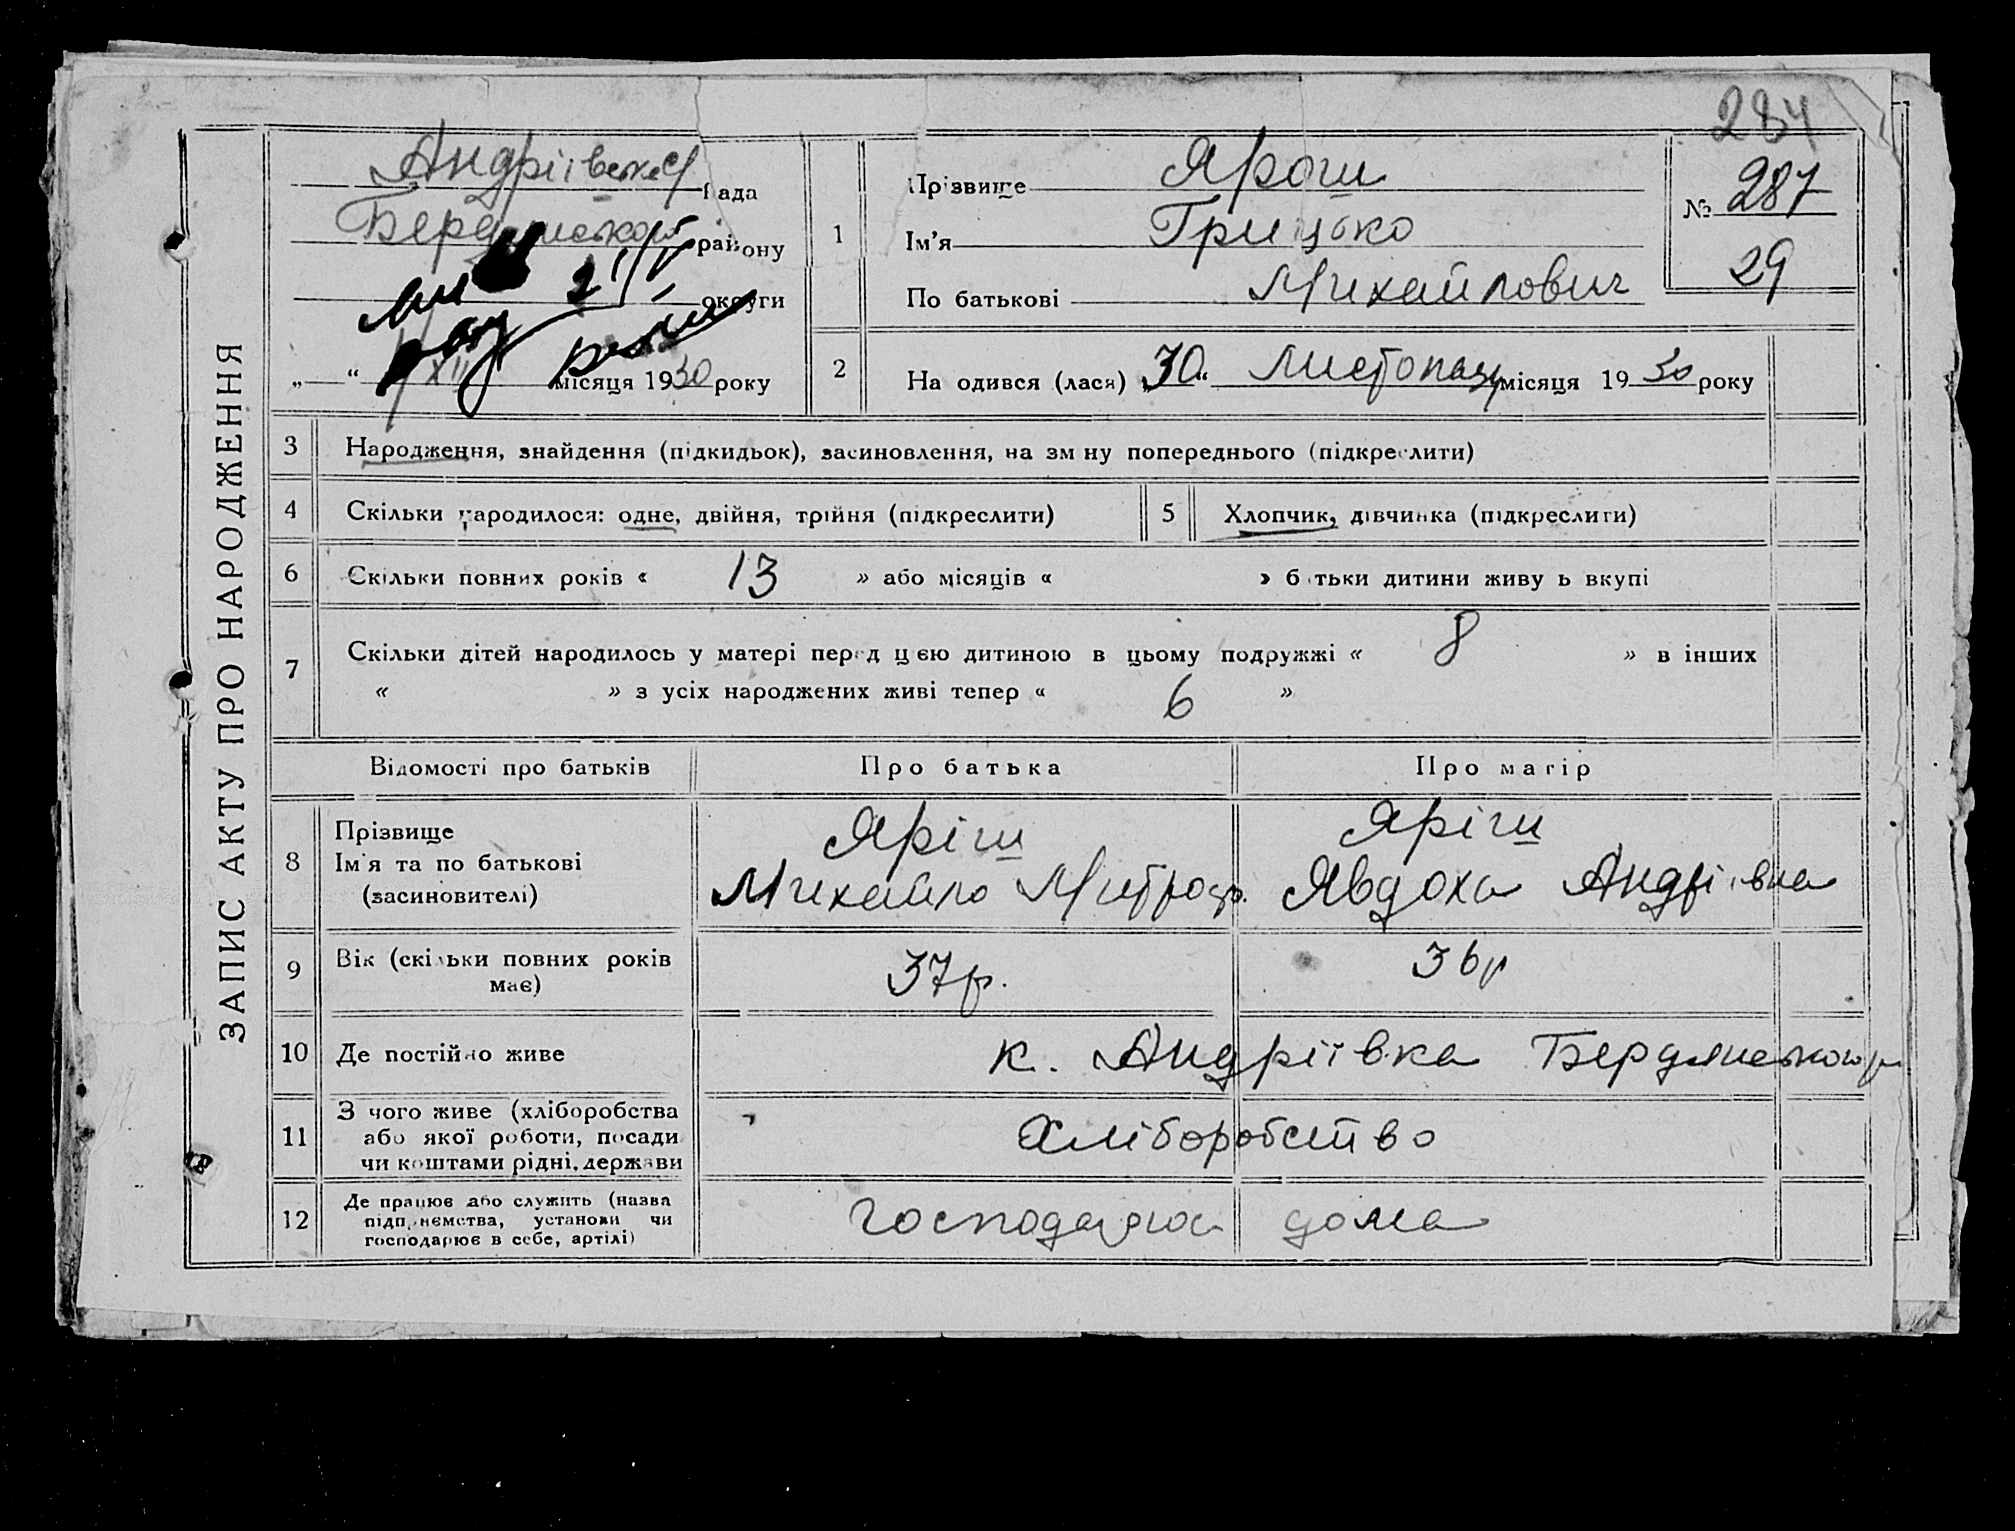 284
ЗАПИС АКТУ ПРО НАРОДЖЕННЯ
Андріївська Рада
Бердянського району
округи
„ “ XII місяця 1930 року
1
Прізвище Ярош
Ім'я Грицько
По батькові Михайлович
№ 287
29
2
На одився (лася) „30“ Листопад місяця 1930 року
3 Народження, знайдення (підкидьок), засиновлення, на зм ну попереднього (підкреслити)
4 Скільки народилося: одне, двійня, трійня (підкреслити) 5 Хлопчик, дівчинка (підкреслити)
6 Скільки повних років « 13 » або місяців « » батьки дитини живу ь вкупі
7 Скільки дітей народилось у матері перед цією дитиною в цьому подружжі « 8 » в інших
« » з усіх народжених живі тепер « 6 »
Відомості про батьків Про батька Про матір
8 Прізвище
Ім'я та по батькові
(засиновителі)
Яріш
Михайло Митроф.
Яріш
Явдоха Андріївна
9 Вік (скільки повних років
має)
37 р. 36 р
10 Де постійно живе к. Андріївка Бердянського р
11 З чого живе (хліборобства
або якої роботи, посади
чи коштами рідні, держави
Хліборобство
12 Де працює або служить (назва
підприємства, установи чи
господарює в себе, артілі)
дома